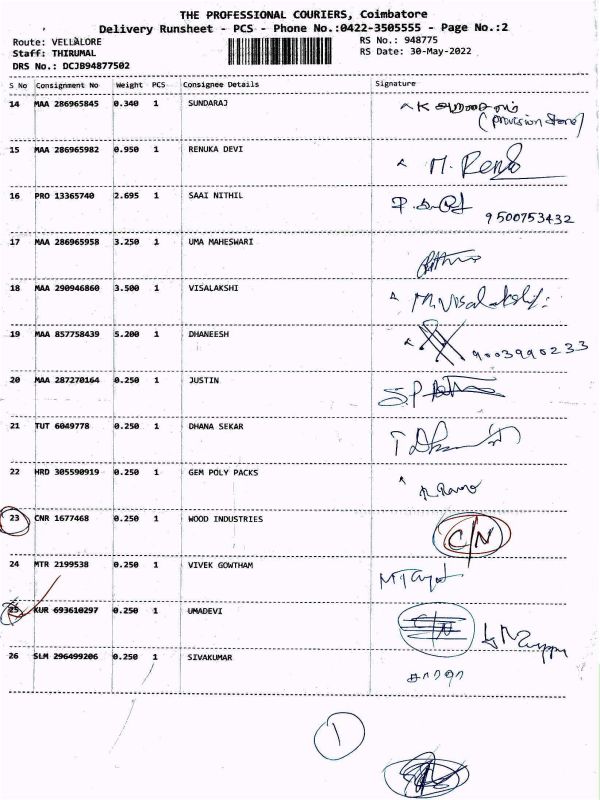 THE PROFESSIONAL COURIERS, Coimbatore
Delivery Runsheet - PCS - Phone No.:0422-3505555 - Page No.:2
Route: VELLALORE
RS No.: 948775
Staff: THIRUMAL
RS Date: 30-May-2022
DRS No.: DCJB94877502
S No Consignment No Weight PCS Consignee Details Signature
14 MAA 286965845 0.340 1 SUNDARAJ
(provision store)
15 MAA 286965982 0.950 1 RENUKA DEVI M. Renu
16 PRO 13365740 2.695 1 SAAI NITHIL
9500753432
17 MAA 286965958 3.250 1 UMA MAHESWARI
18 MAA 290946860 3.500 1 VISALAKSHI M.Visalakshi
19 MAA 857758439 5.200 1 DHANEESH 9003990233
20 MAA 287270164 0.250 1 JUSTIN
21 TUT 6049778 0.250 1 DHANA SEKAR
22 HRD 305590919 0.250 1 GEM POLY PACKS
23 CNR 1677468 0.250 1 WOOD INDUSTRIES C/N
24 MTR 2199538 0.250 1 VIVEK GOWTHAM
25 KUR 693610297 0.250 1 UMADEVI C/N
26 SLM 296499206 0.250 1 SIVAKUMAR
1